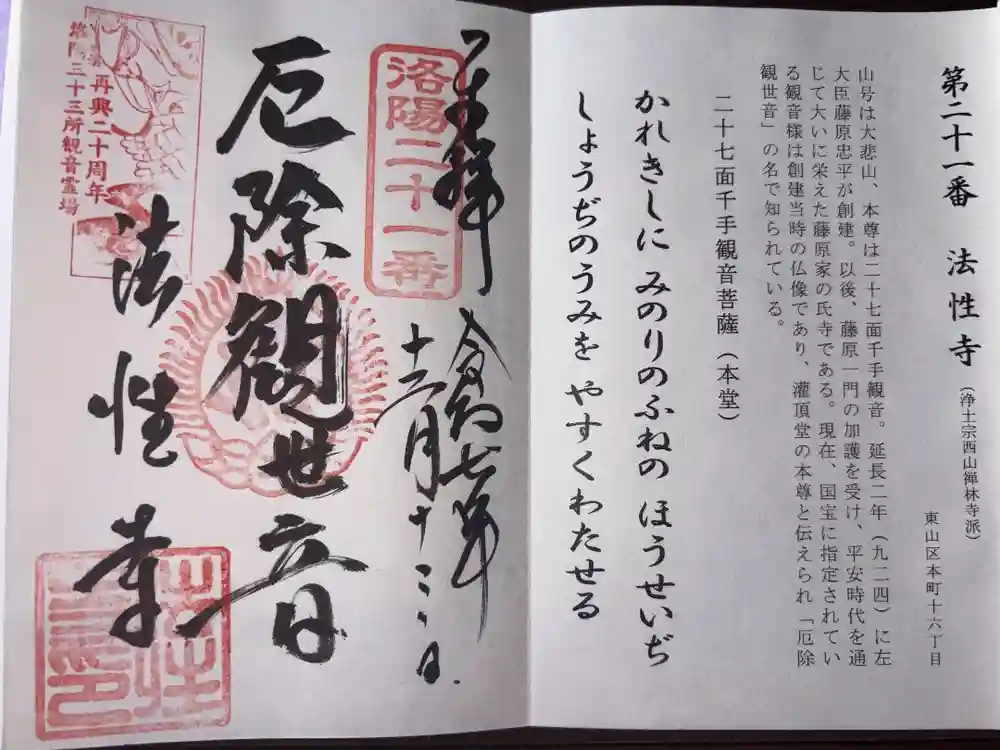 第二十一番　法性寺（浄土宗西山禅林寺派）
東山区本町十六丁目
山号は大悲山、本尊は二十七面千手観音。延長二年（九二四）に左
大臣藤原忠平が創建。以後、藤原一門の加護を受け、平安時代を通
じて大いに栄えた藤原家の氏寺である。現在、国宝に指定されてい
る観音様は創建当時の仏像であり、灌頂堂の本尊と伝えられ「厄除
観世音」の名で知られている。
二十七面千手観音菩薩（本堂）
かれきしに みのりのふねの ほうせいぢ
しょうぢのうみを やすくわたせる
奉拝
令和七年
十二月十三日
洛陽二十一番
厄除観世音
法性寺
再興二十周年
洛陽三十三所観音霊場